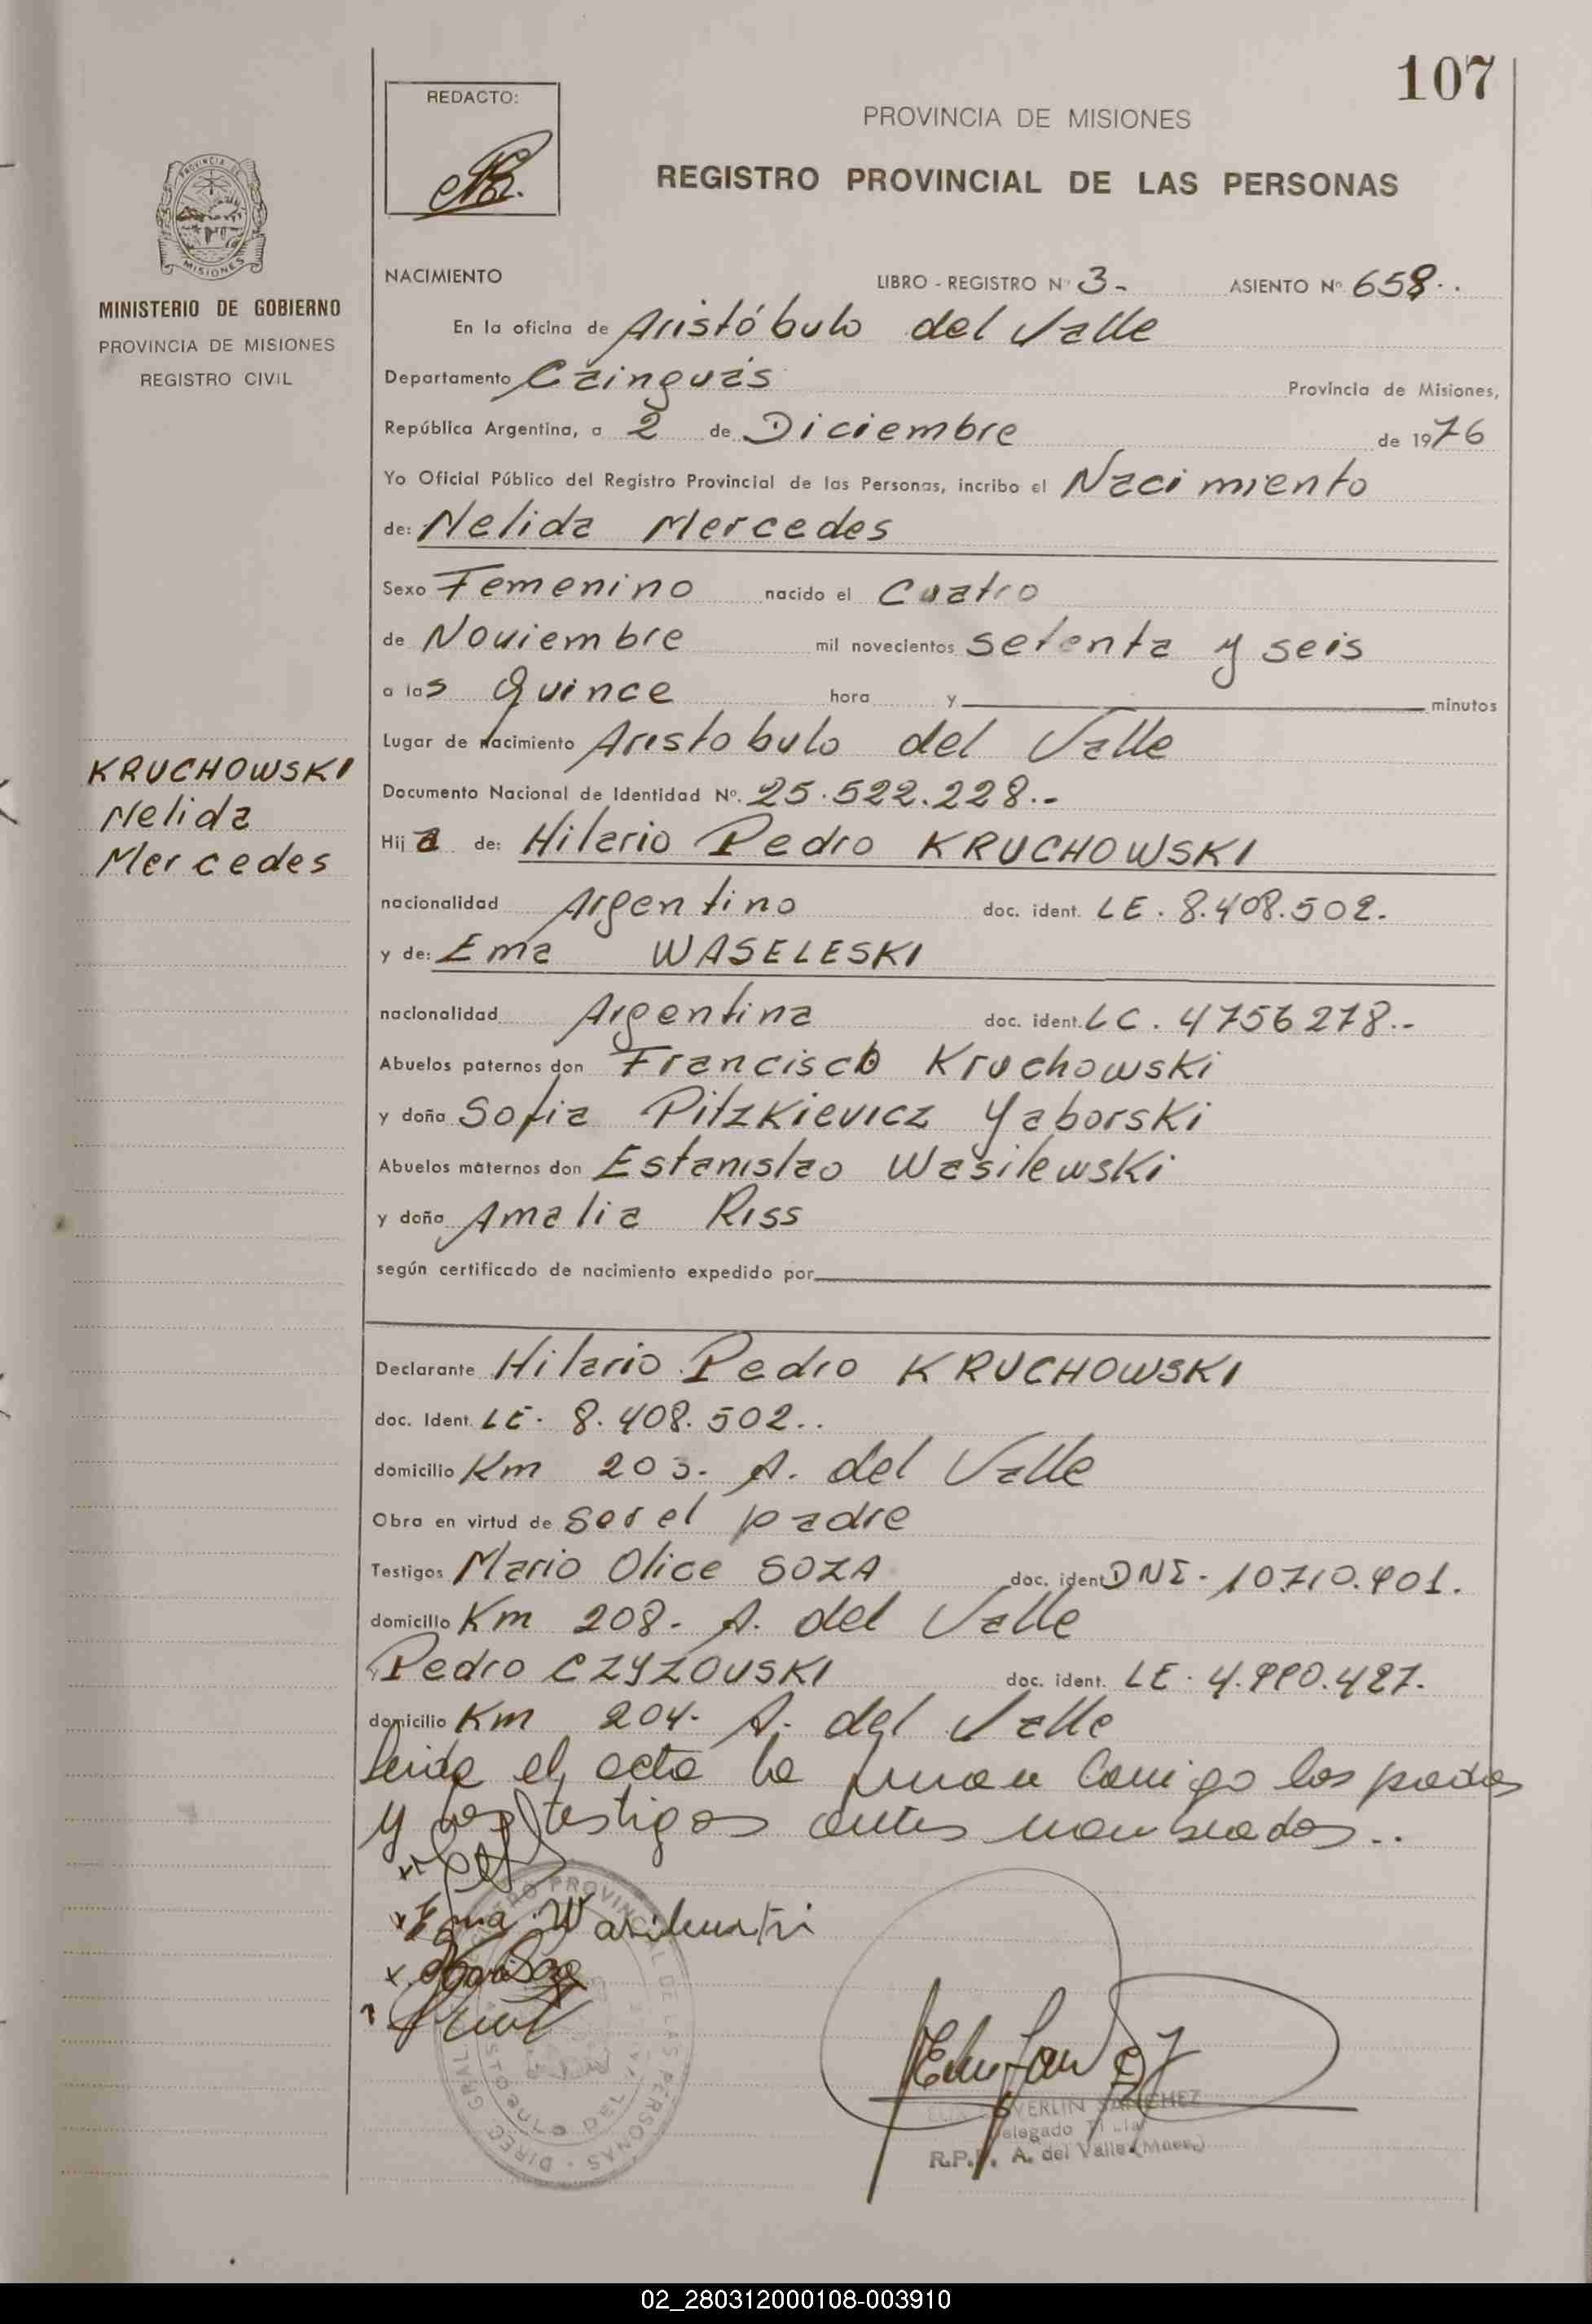 107
REDACTO:
PROVINCIA DE MISIONES
REGISTRO PROVINCIAL DE LAS PERSONAS
PROVINCIA DE
MISIONES
MINISTERIO DE GOBIERNO
PROVINCIA DE MISIONES
REGISTRO CIVIL
NACIMIENTO LIBRO - REGISTRO Nº 3- ASIENTO Nº 658..
En la oficina de Aristóbulo del Valle
Departamento Cainguás Provincia de Misiones,
República Argentina, a 2 de Diciembre de 1976
Yo Oficial Público del Registro Provincial de las Personas, incribo el Nacimiento
de: Nelida Mercedes
Sexo Femenino nacido el Cuatro
de Noviembre mil novecientos setenta y seis
a las quince hora y minutos
Lugar de nacimiento Aristobulo del Valle
KRUCHOWSKI
Nelida
Mercedes
Documento Nacional de Identidad Nº. 25.522.228.-
Hija de: Hilario Pedro KRUCHOWSKI
nacionalidad Argentino doc. ident. LE. 8.408.502.
y de: Ema WASELESKI
nacionalidad Argentina doc. ident. LC. 4756278.-
Abuelos paternos don Francisco Kruchowski
y doña Sofia Pitzkievicz Yaborski
Abuelos maternos don Estanislao Wasilewski
y doña Amalia Riss
según certificado de nacimiento expedido por
Declarante Hilario Pedro KRUCHOWSKI
doc. Ident. LE. 8.408.502..
domicilio Km 203. A. del Valle
Obra en virtud de ser el padre
Testigos Mario Olice SOZA doc. ident DNI. 10.710.901.
domicilio Km 208. A. del Valle
y Pedro CZYZOUSKI doc. ident. LE. 4.990.427.
domicilio Km 204. A. del Valle
Leida el acta la firman conmigo los padres
y los testigos antes nombrados..
Ema Wasilewski
REGISTRO PROVINCIAL DE LAS PERSONAS · DIREC. GRAL.
ARISTOBULO DEL VALLE
SANCHEZ
Delegado
R.P.P. A. del Valle (Mnes.)
02_280312000108-003910